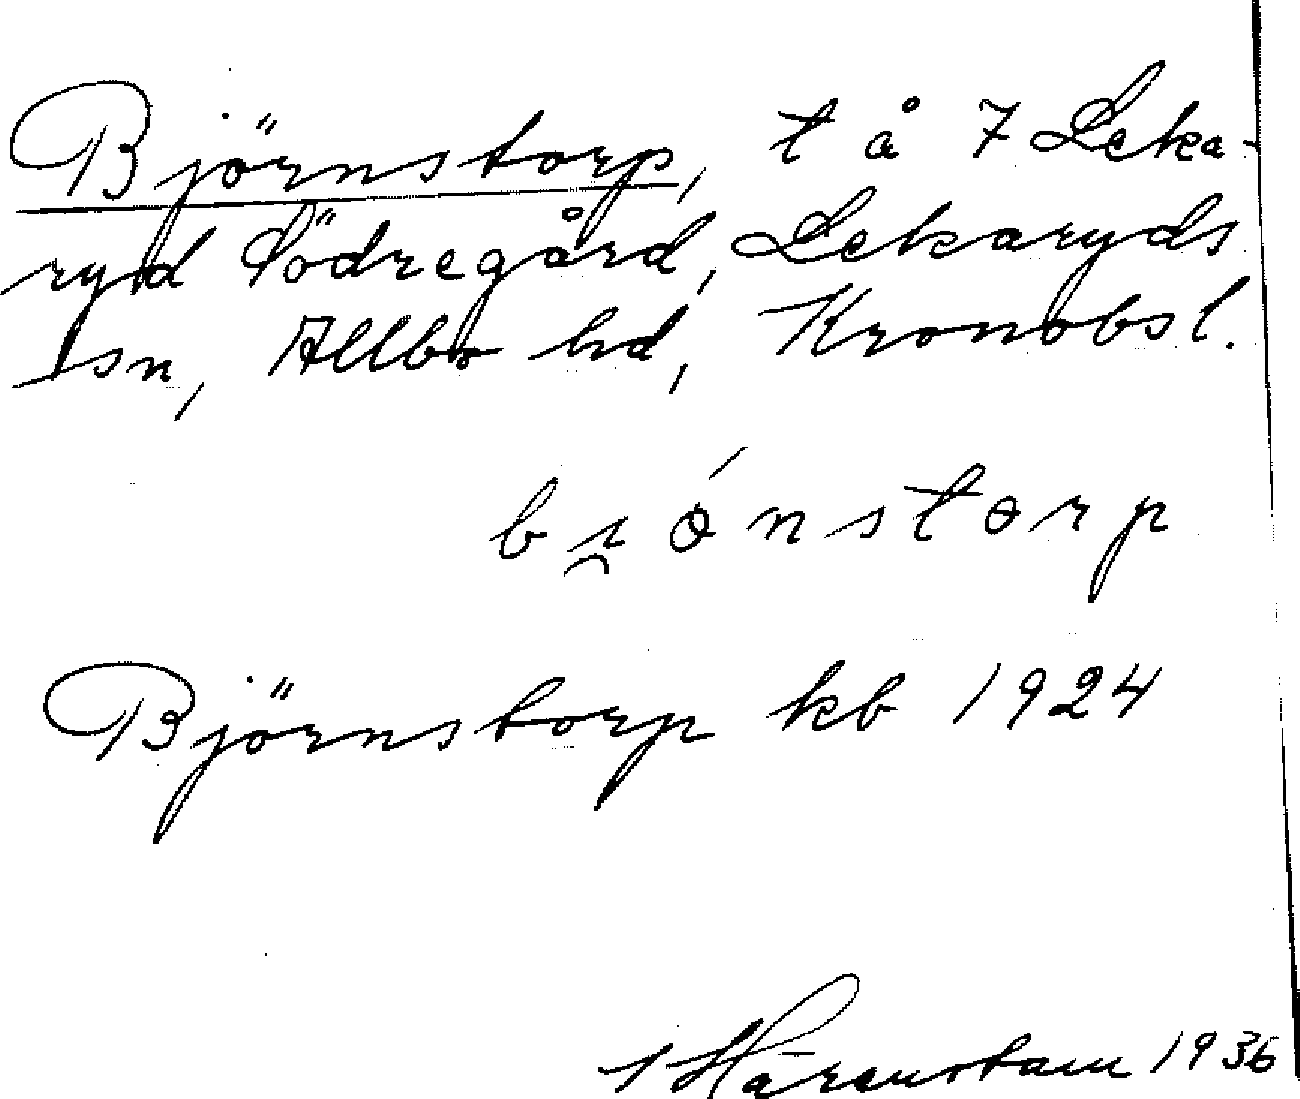 Björnstorp, t å 7 Leka-
ryd Södregård, Lekaryds
sn, Allbo hd, Kronobsl.
bı̯ónstorp
Björnstorp kb 1924
Härenstam 1936